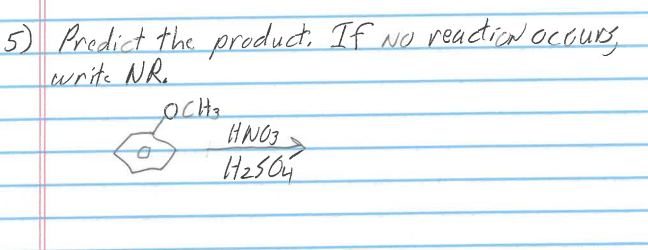 5) Predict the product. If NO reaction occurs,
write NR.
OCH3
HNO3
H2SO4